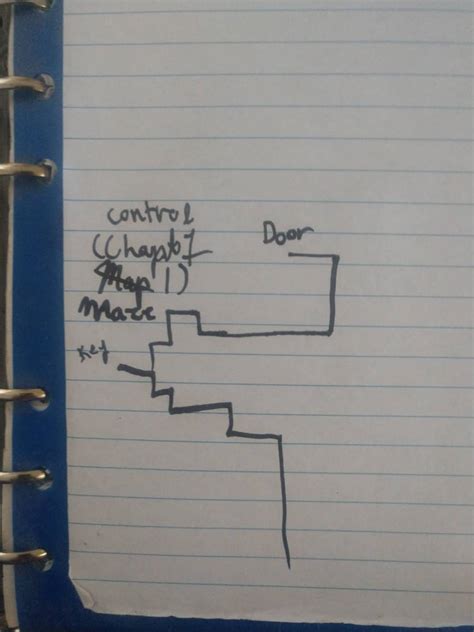 control
(Chapter 1
Map 1)
Maze
Door
Key